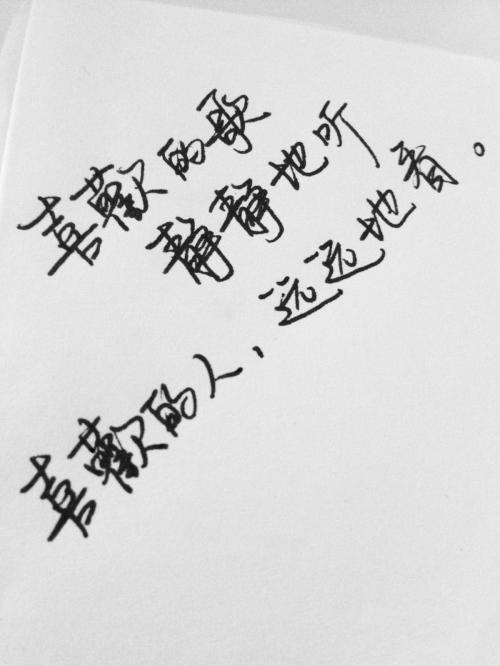 喜歡的歌
静静地听
喜歡的人、远远地看。